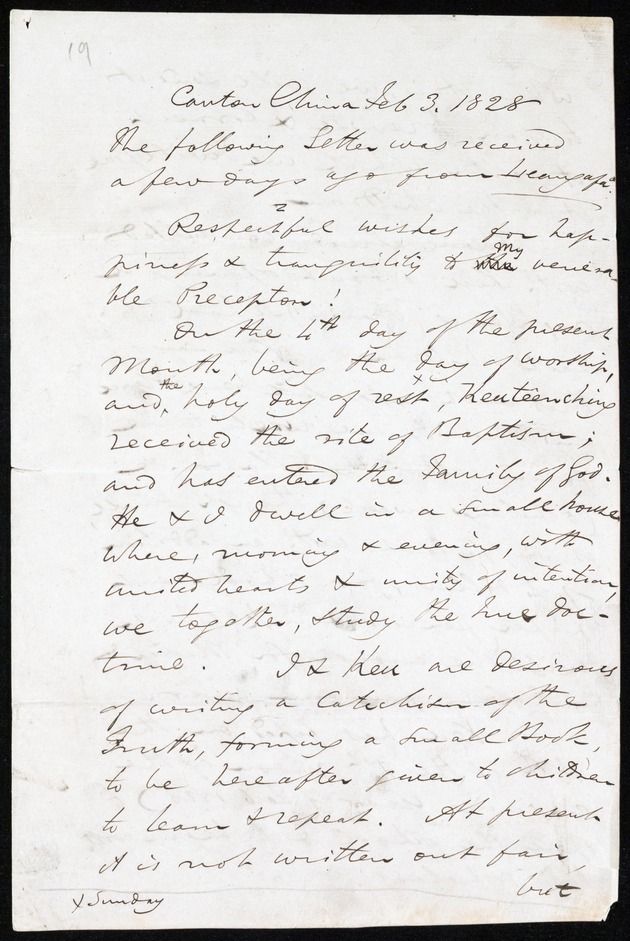 19
Canton China Feb 3. 1828
The following Letter was received
a few days ago from Leangafa.
2
Respectful wishes for hap-
piness & tranquility to the My venera
ble Preceptor!
On the 4th day of the present
Month, being the day of worship,
and, the holy day of rest x, Keuteenching
received the rite of Baptism;
and has entered the Family of God.
He & I dwell in a small house
where, morning & evening, with
united hearts & unity of intention,
we together, study the true doc-
trine. I & Keu are desirous
of writing a Catechism of the
Truth, forming a small Book,
to be hereafter given to children
to learn & repeat. At present
it is not written out fair,
but
x Sunday